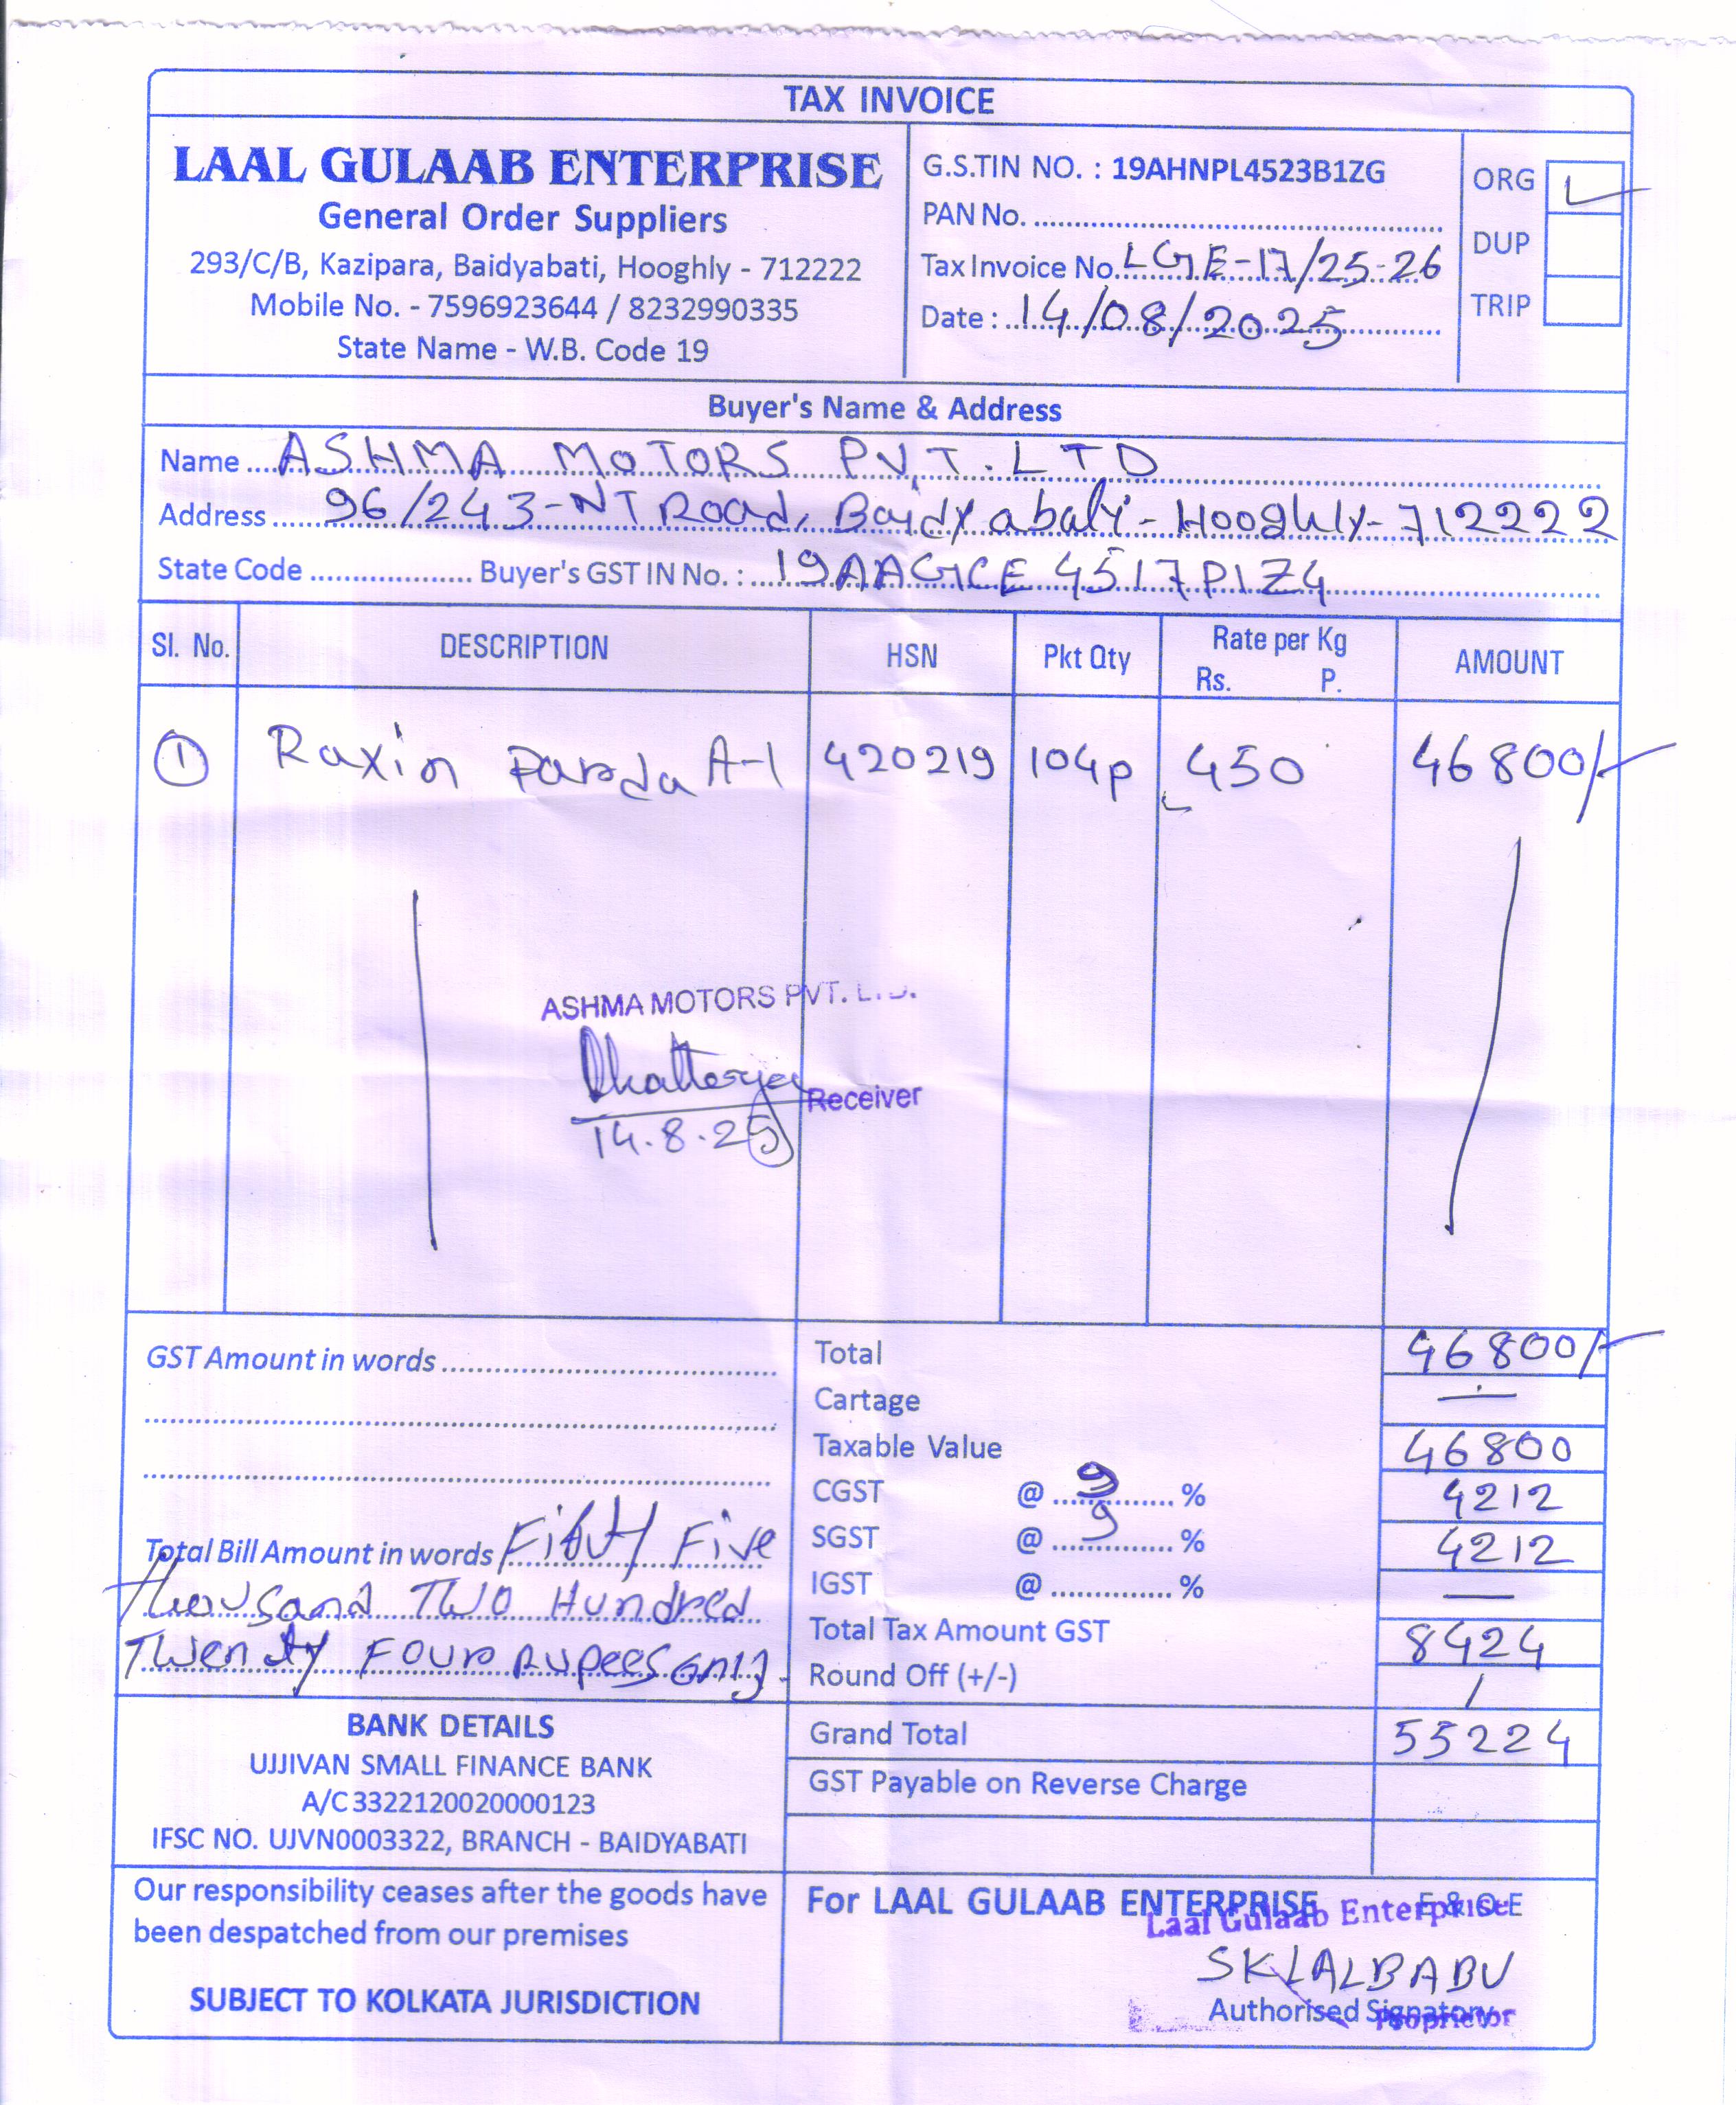 TAX INVOICE
LAAL GULAAB ENTERPRISE
General Order Suppliers
293/C/B, Kazipara, Baidyabati, Hooghly - 712222
Mobile No. - 7596923644 / 8232990335
State Name - W.B. Code 19
G.S.TIN NO. : 19AHNPL4523B1ZG
PAN No.
Tax Invoice No. LGE-17/25-26
Date : 14/08/2025
ORG
DUP
TRIP
Buyer's Name & Address
Name ASHMA MOTORS PVT. LTD
Address 96/243-NT Road, Baidyabaly-Hooghly-712222
State Code Buyer's GST IN No. : 19AAGCE4517P1Z4
Sl. No. DESCRIPTION HSN Pkt Qty Rate per Kg Rs. P. AMOUNT
1 Raxin Parda A-1 420219 104p 450 46800/-
ASHMA MOTORS PVT. LTD.
Chatterjee Receiver
14.8.25
GST Amount in words
Total 46800/-
Cartage —
Taxable Value 46800
CGST @ 9 % 4212
SGST @ 9 % 4212
IGST @ % —
Total Tax Amount GST 8424
Round Off (+/-) /
Grand Total 55224
GST Payable on Reverse Charge
Total Bill Amount in words Fifty Five
Thousand Two Hundred
Twenty Four Rupees only.
BANK DETAILS
UJJIVAN SMALL FINANCE BANK
A/C 3322120020000123
IFSC NO. UJVN0003322, BRANCH - BAIDYABATI
Our responsibility ceases after the goods have
been despatched from our premises
SUBJECT TO KOLKATA JURISDICTION
For LAAL GULAAB ENTERPRISE E & O E
Laal Gulaab Enterprise
SK LALBABU
Authorised Signatory
Proprietor